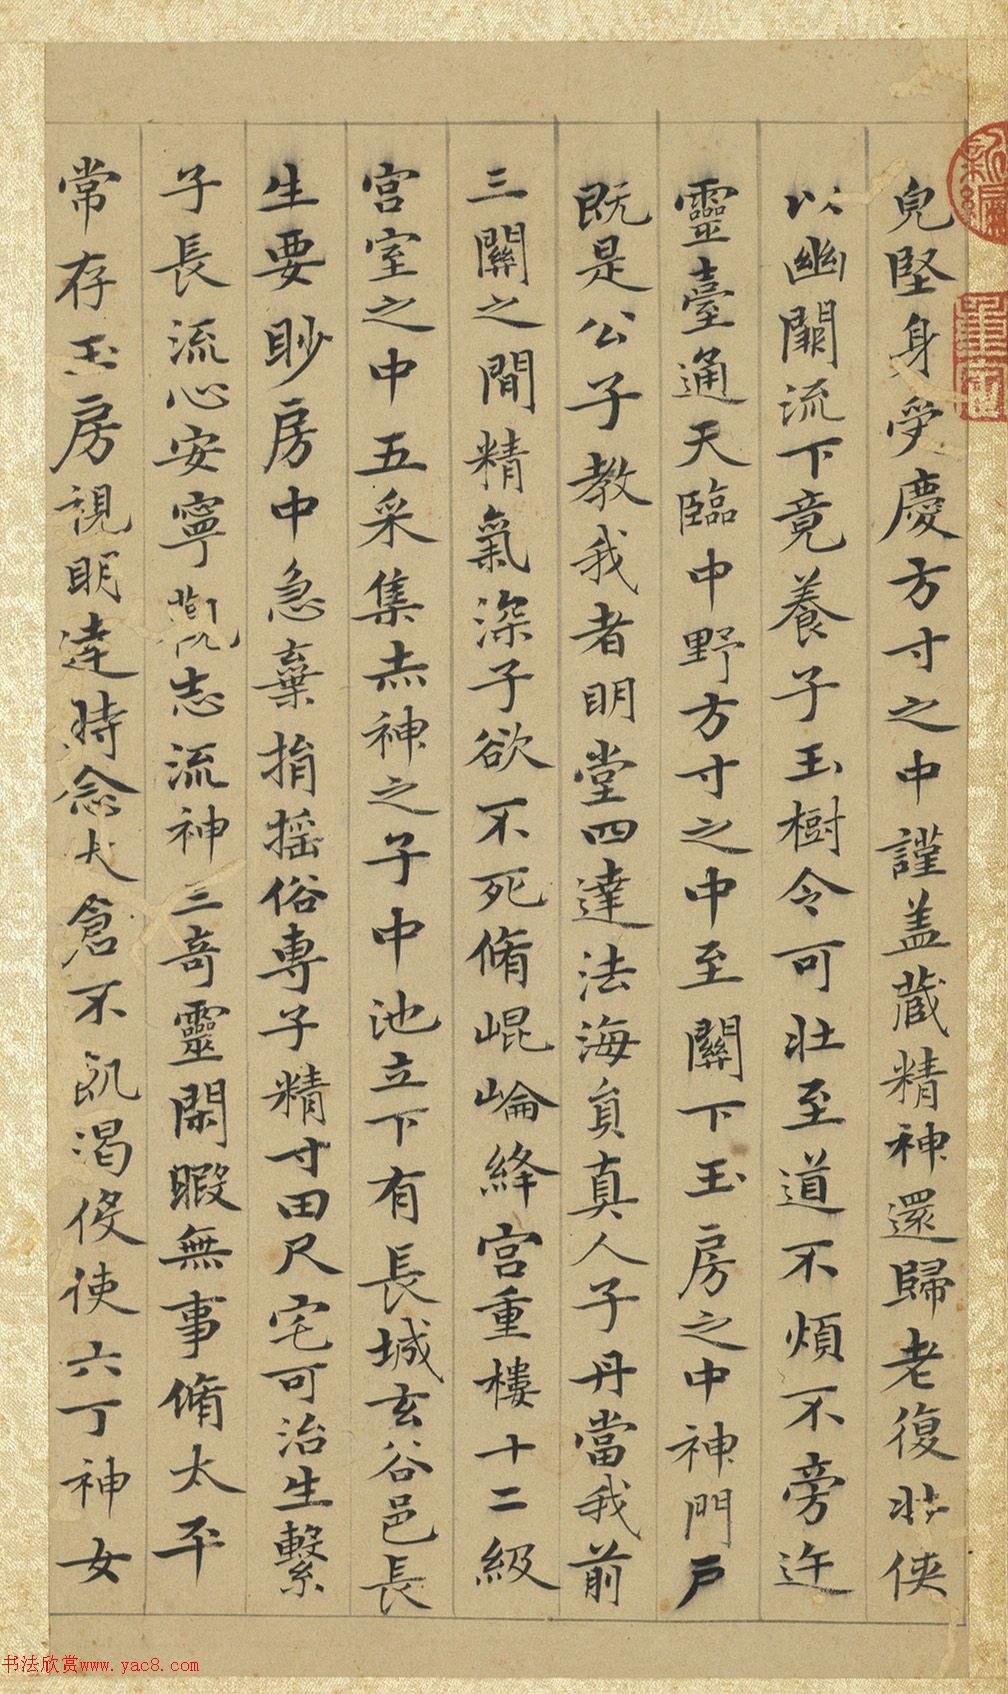 皃堅身受慶方寸之中謹盖藏精神還歸老復壯俠
以幽闕流下竟養子玉樹令可壯至道不煩不旁迕
靈臺通天臨中野方寸之中至關下玉房之中神門戶
既是公子教我者明堂四達法海員真人子丹當我前
三關之間精氣深子欲不死脩崐崘絳宮重樓十二級
宮室之中五采集赤神之子中池立下有長城玄谷邑長
生要眇房中急棄捐搖俗専子精寸田尺宅可治生繫
子長流心安寧志流神三奇靈閑暇無事脩太平
常存玉房視明達時念大倉不飢渴侵使六丁神女
书法欣赏www.yac8.com